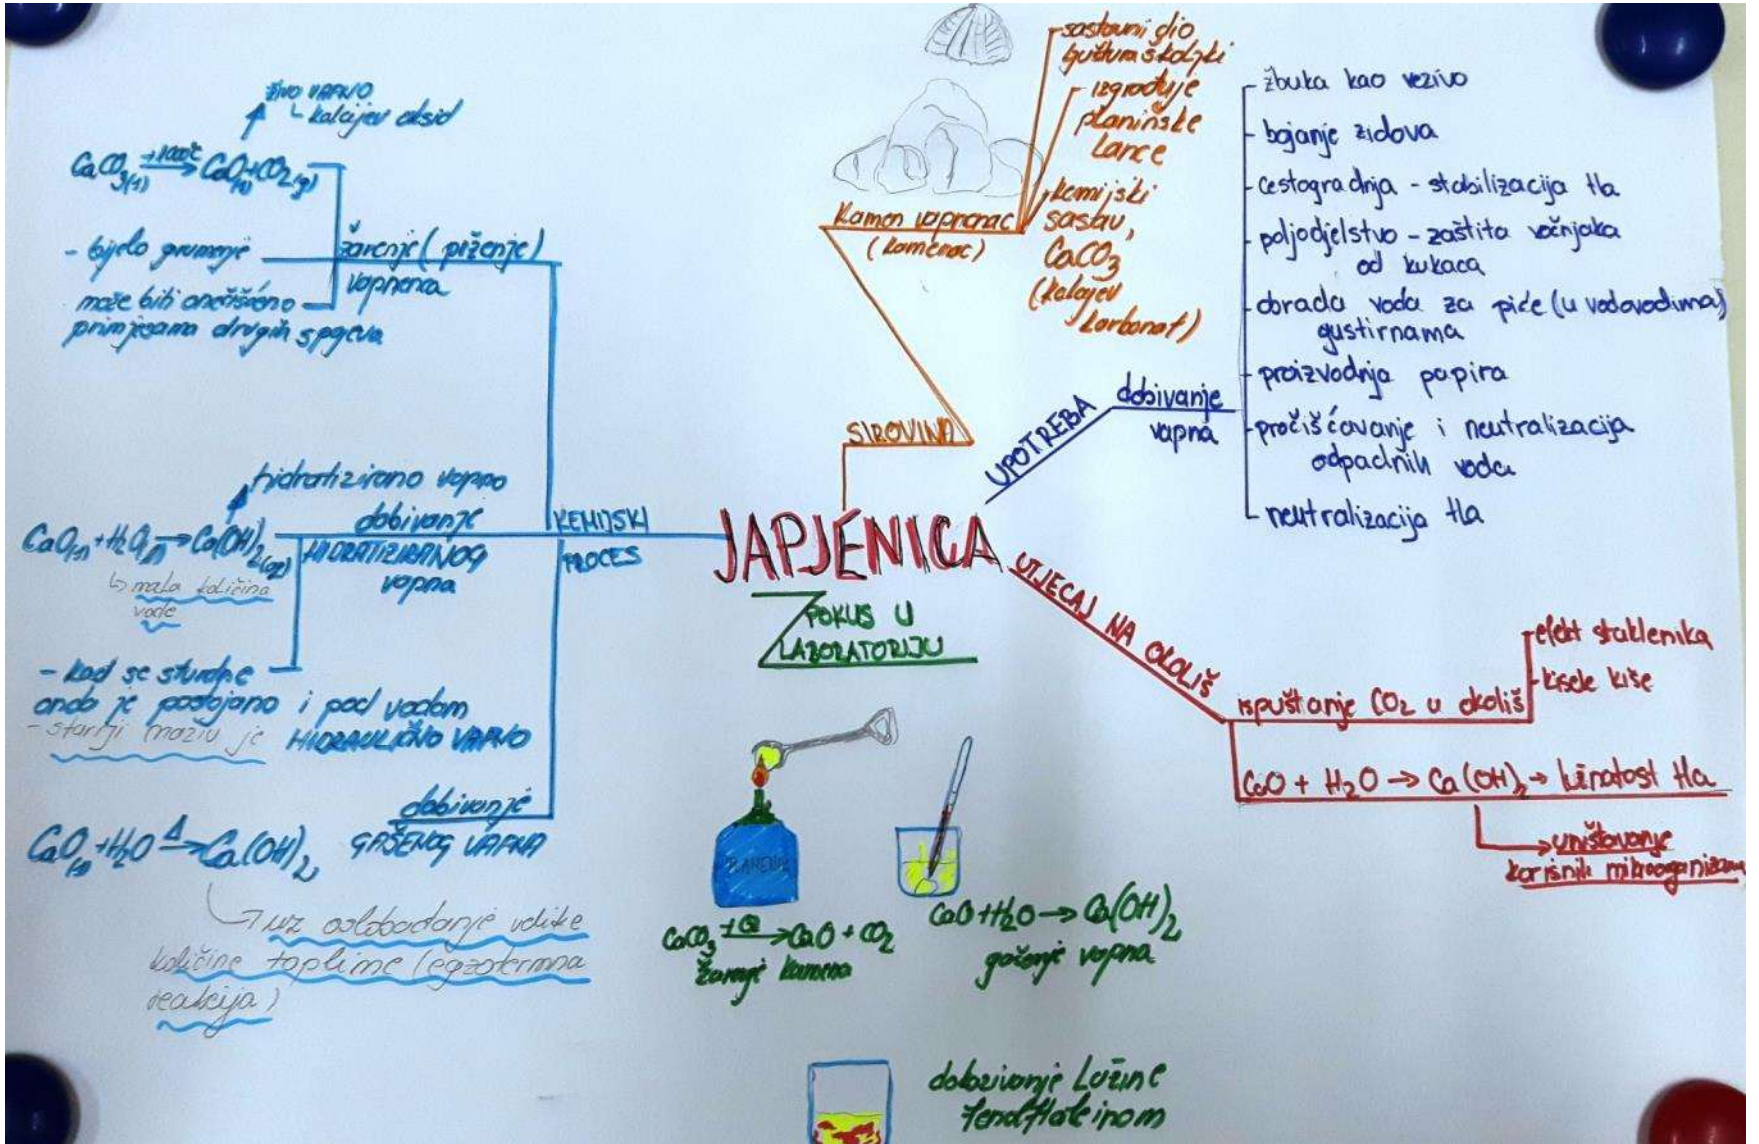 JAPJENICA
KEMIJSKI
PROCES
žarenje (prženje)
vapnenca
ŽIVO VAPNO
kalcijev oksid
CaCO₃(s) +1000°C→ CaO(s) + CO₂(g)
- bijelo grumenje
može biti onečišćeno
primjesama drugih spojeva
dobivanje
HIDRATIZIRANOG
vapna
hidratizirano vapno
CaO(s) + H₂O(l) → Ca(OH)₂(aq)
↳ mala količina
vode
- kad se stvrdne
onda je postojano i pod vodom
- stariji naziv je HIDRAULIČNO VAPNO
dobivanje
GAŠENOG VAPNA
CaO(s) + H₂O Δ→ Ca(OH)₂
→ uz oslobađanje velike
količine topline (egzotermna
reakcija)
SIROVINA
Kamen vapnenac
(kamenac)
sastavni dio
ljuštura školjki
- izgrađuje
planinske
lance
kemijski
sastav,
CaCO₃
(kalcijev
karbonat)
UPOTREBA
dobivanje
vapna
- žbuka kao vezivo
- bojanje zidova
- cestogradnja - stabilizacija tla
- poljodjelstvo - zaštita voćnjaka
od kukaca
- obrada voda za piće (u vodovodima)
gustirnama
- proizvodnja papira
- pročišćavanje i neutralizacija
odpadnih voda
- neutralizacija tla
UTJECAJ NA OKOLIŠ
ispuštanje CO₂ u okoliš
- efekt staklenika
- kisele kiše
CaO + H₂O → Ca(OH)₂ → lužnatost tla
→ uništavanje
korisnih mikroorganizama
POKUS U
LABORATORIJU
CaCO₃ → CaO + CO₂
žarenje kamena
CaO + H₂O → Ca(OH)₂
gašenje vapna
dokazivanje Lužine
fenolftaleinom